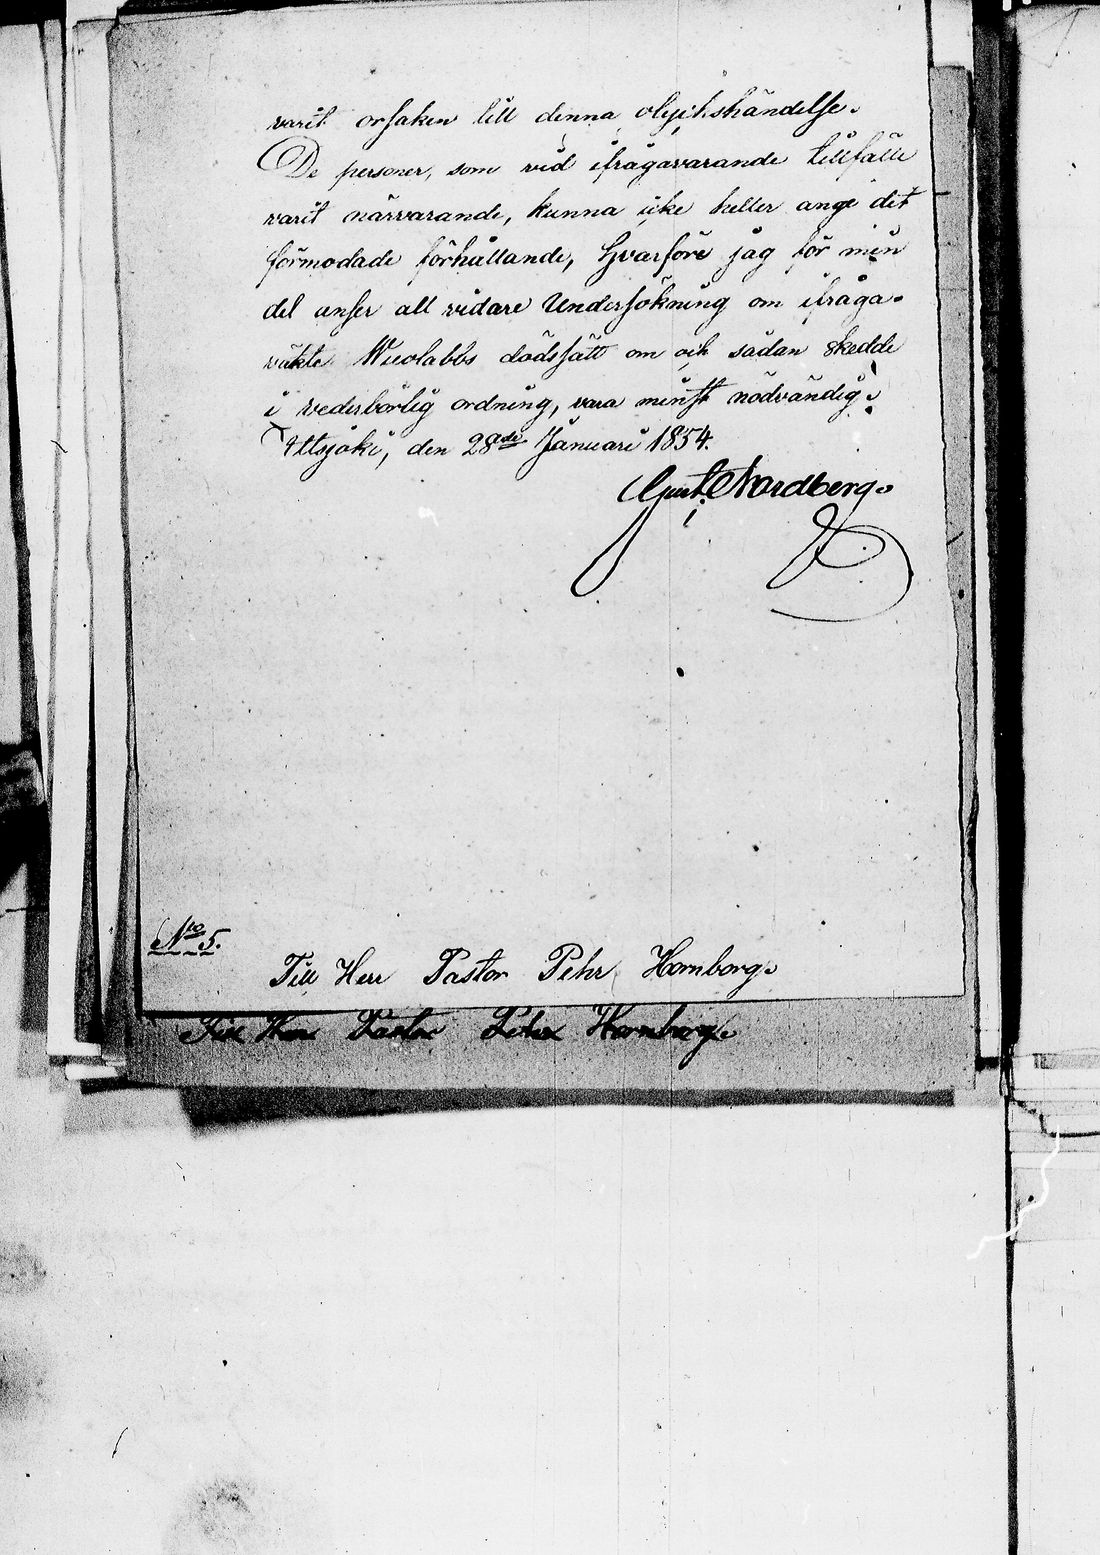 varit orsaken till denna olyckshändelse.
De personer, som vid ifrågavarande tillfälle
varit närvarande, kunna icke heller ange det
förmodade förhållande, hvarföre jag för min
del anser all vidare Undersökning om ifråga-
väckte Nicolabbs dödssätt om och sådan skedde
i vederbörlig ordning, vara minst nödvändig.
Uttsjoki, den 28de Januari 1854.
Gust. Nordberg.
No 5.
Till Herr Pastor Pehr Hornborg.
Till Herr Pastor Pehr Hornborg.